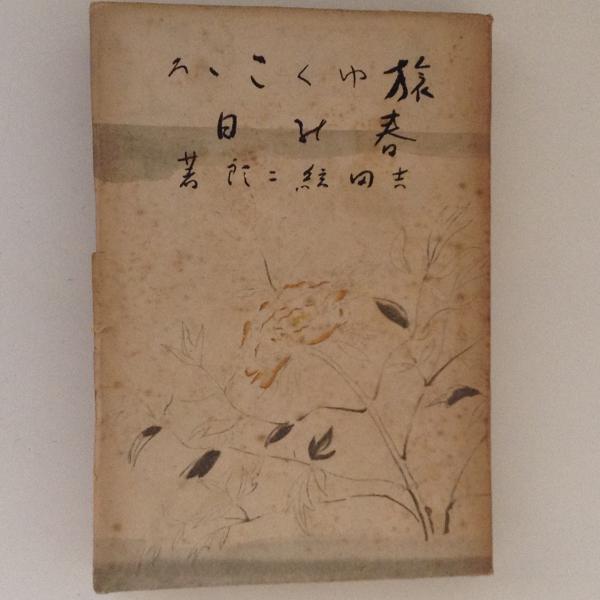 旅ゆくこゝろ
春の日
吉田絃二郎著